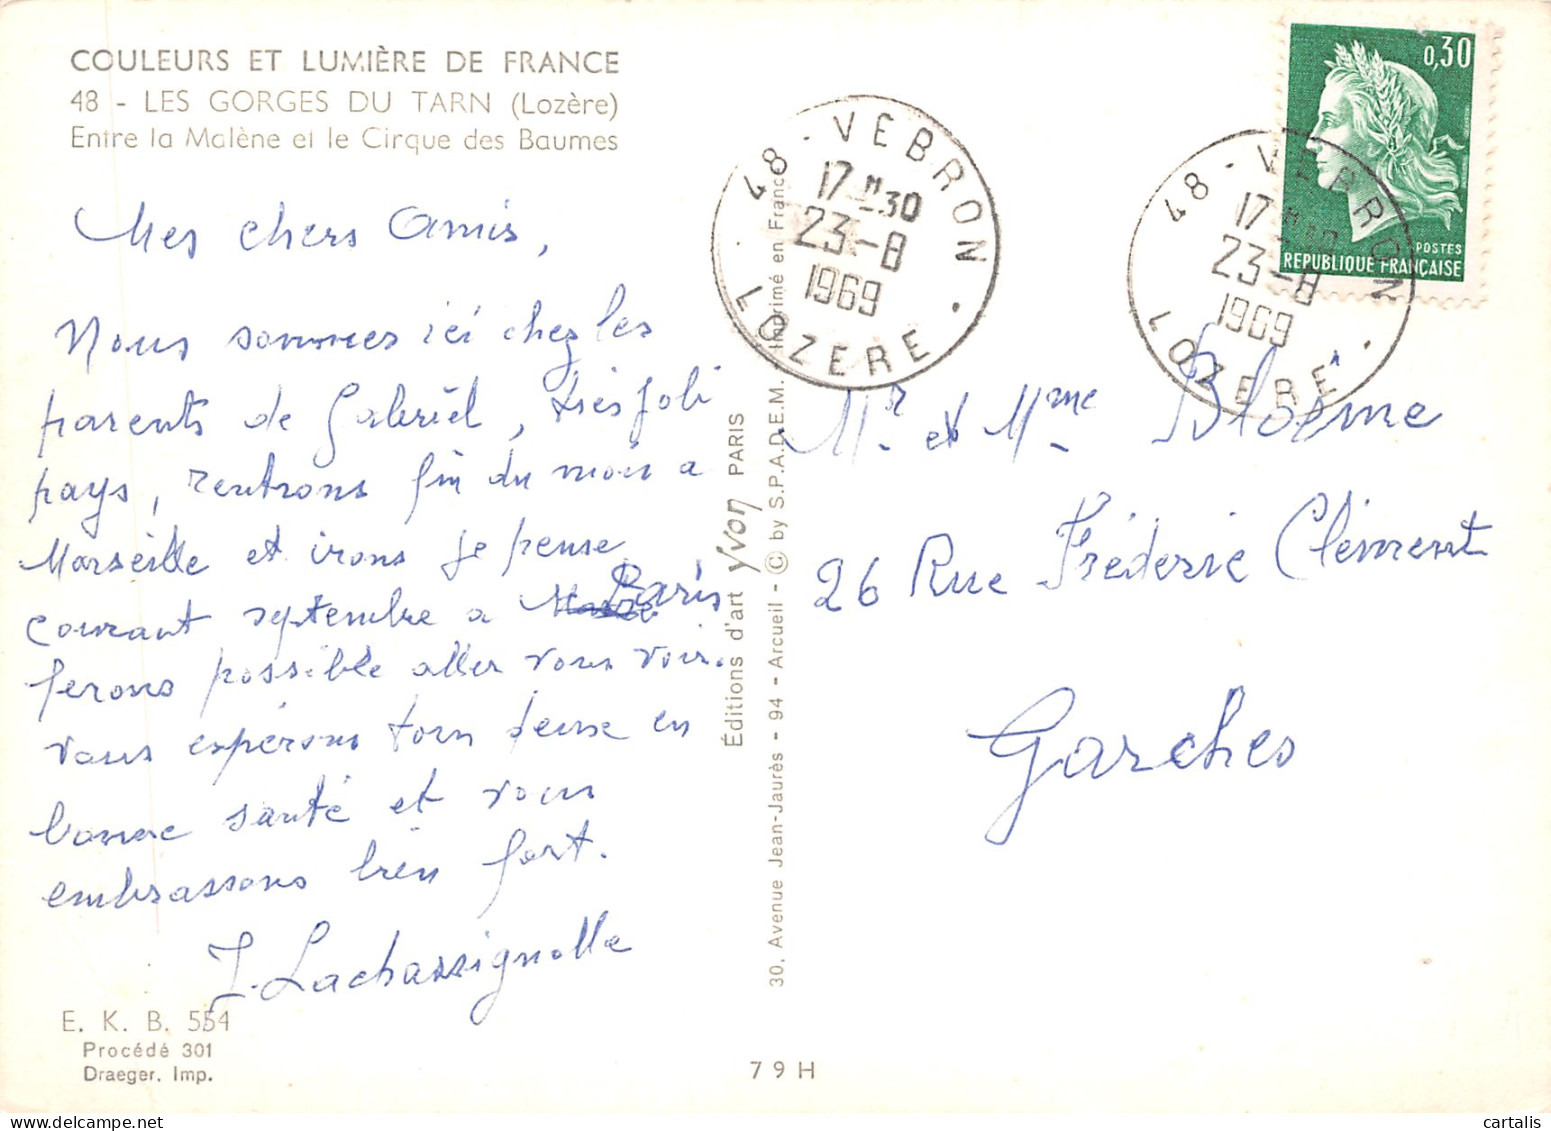 COULEURS ET LUMIÈRE DE FRANCE
48 - LES GORGES DU TARN (Lozère)
Entre la Malène et le Cirque des Baumes
Mes chers Amis,
Nous sommes ici chez les
parents de Gabriel, très joli
pays, rentrons fin du mois a
Marseille et irons je pense
courant septembre a Paris
ferons possible aller vous voir.
vous espérons tous deux en
bonne santé et vous
embrassons bien fort.
J. Lachassignolle
E. K. B. 554
Procédé 301
Draeger, Imp.
Éditions d'art yvon PARIS
30, Avenue Jean-Jaurès - 94 - Arcueil - © by S.P.A.D.E.M. - Imprimé en France
79H
48 - VEBRON
17 H 30
23-8
1969
LOZERE
48 - VEBRON
17 H 30
23-8
1969
LOZERE
0,30
POSTES
REPUBLIQUE FRANÇAISE
Mr et Mme
26 Rue Fréderic Clément
Garches
cartalis